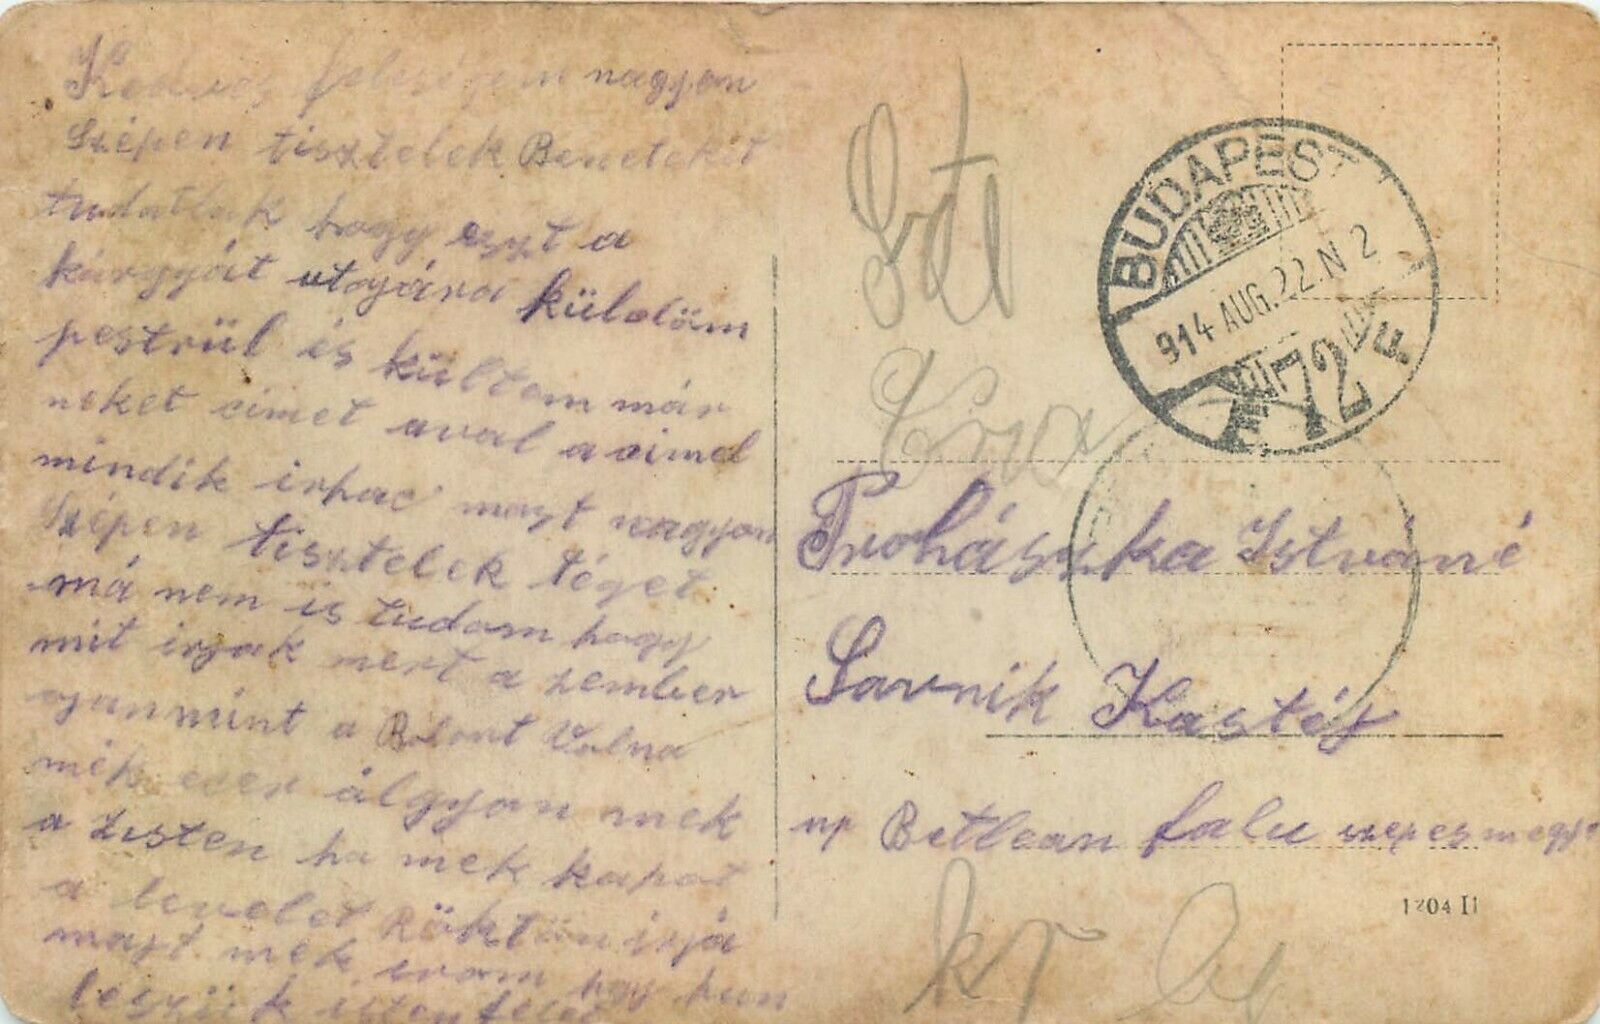 Kedves feleségem nagyon
szépen tisztelek Beneteket
tudatlak hogy eszt a
kárgyát utojára küldöm
pestrül is kültem már
neket cimet aval a cimel
mindik irhac maszt nagyon
szépen tisztelek téget
má nem is tudom hogy
mit irjak mert a zember
ojan mint a Bolont Volna
mek ecer álgyon mek
a Zisten ha mek kapot
a levelet Röktön irjá
majt mek irom hgy hun
leszük isten
BUDAPEST
914 AUG. 22. N 2
72 F
Prohászka Istváné
Savnik Kastéj
up Betlean falu szepesmegye
1204 II